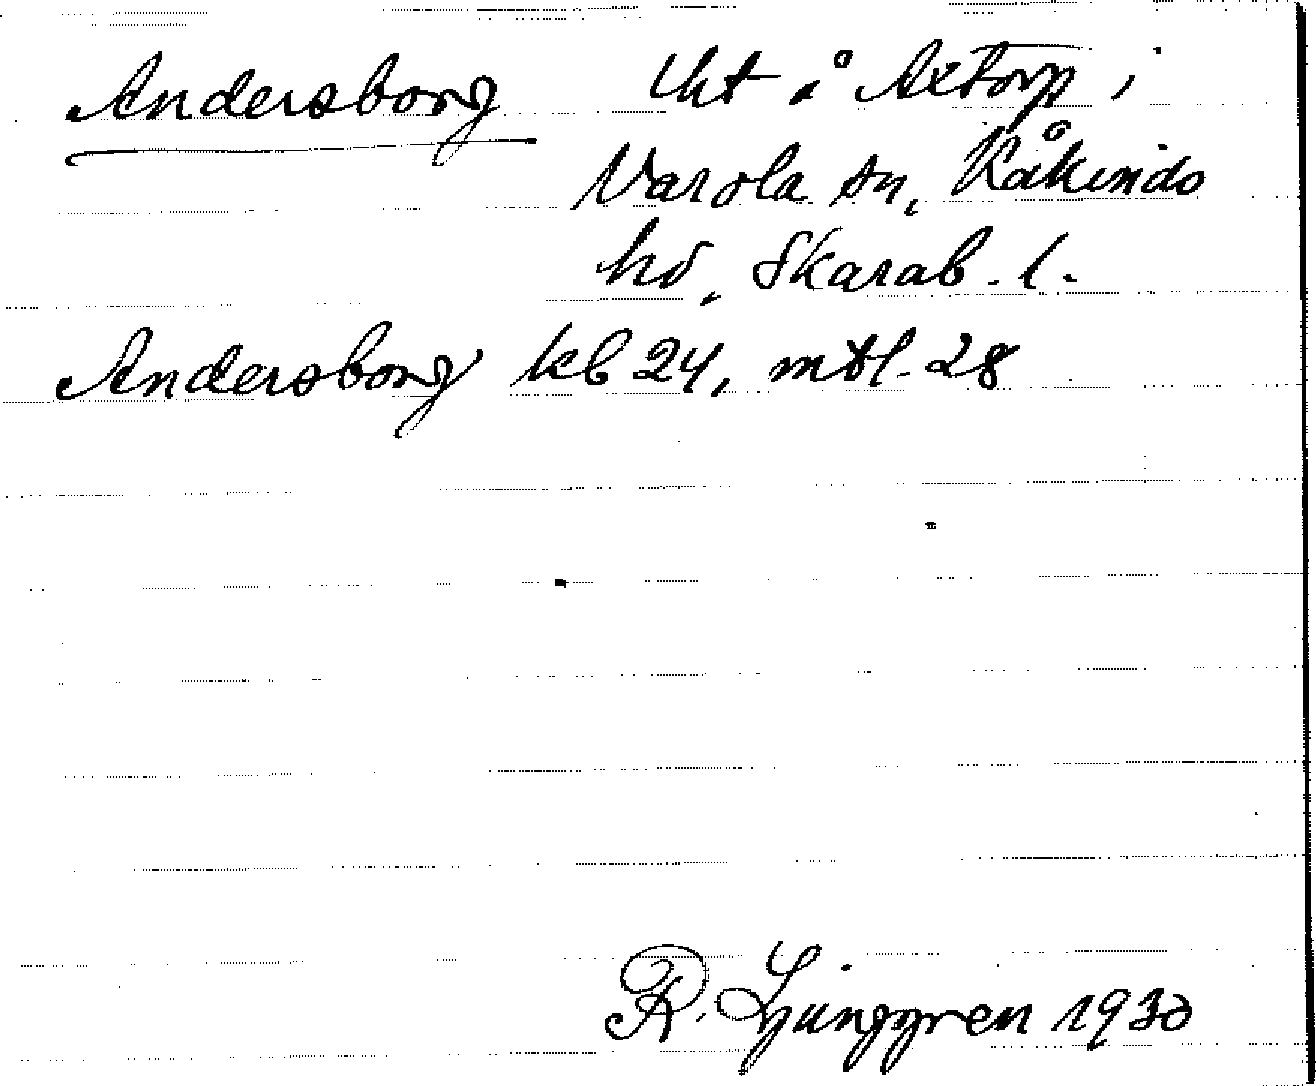 Andersborg lht å Axtorp i
Varola sn, Kåkinds
hd, Skarab. l.
Andersborg kb 24, mtl. 28
R. Ljunggren 1930